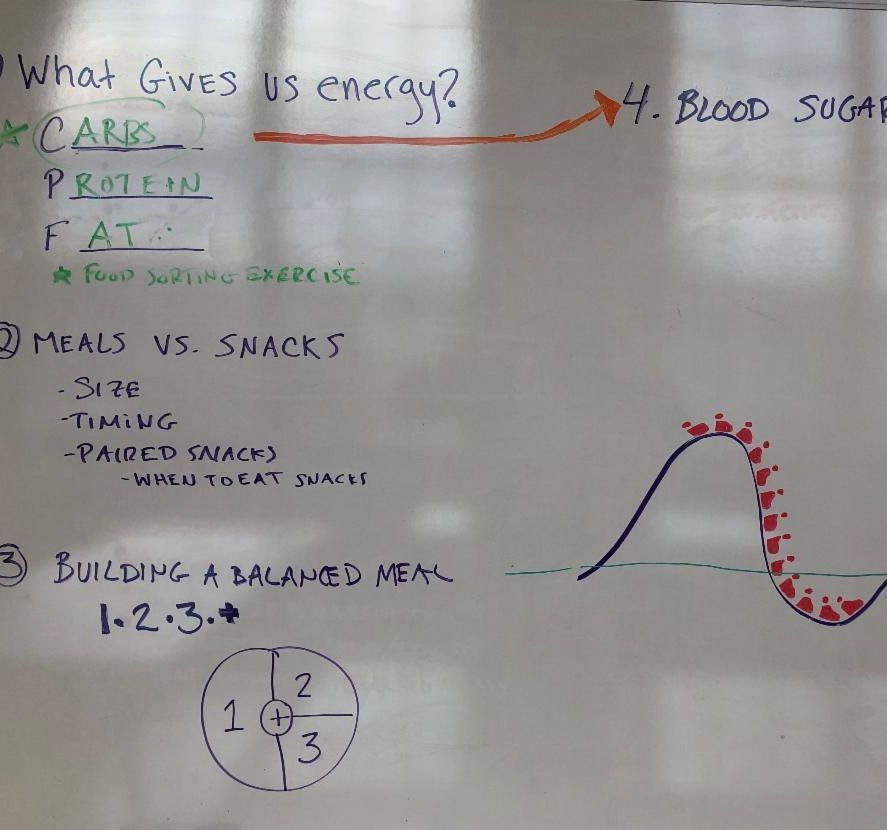 What Gives us energy?
CARBS
PROTEIN
FAT
FOOD SORTING EXERCISE
4. BLOOD SUGAR
2 MEALS VS. SNACKS
- SIZE
- TIMING
- PAIRED SNACKS
- WHEN TO EAT SNACKS
3 BUILDING A BALANCED MEAL
1.2.3.+
1
2
+
3